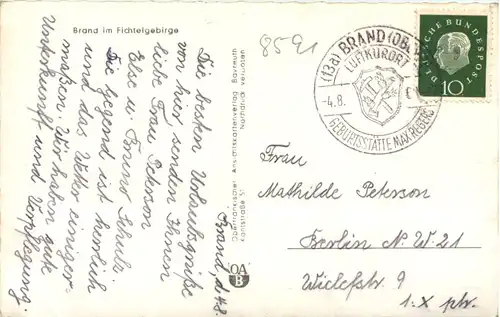 Brand im Fichtelgebirge
Brand, d. 4.8.
Die besten Urlaubsgrüße
von hier senden Ihnen
liebe Frau Peterson
Else u. Bruno Schulz
Die Gegend ist herrlich
und das Wetter einiger-
maßen. Wir haben gute
Unterkunft und Verpflegung.
Oberfränkischer Ansichtskartenverlag Bayreuth
Nachdruck verboten
OA
B
8591
(13a) BRAND (OB
LUFTKURORT
-4.8.
GEBURTSSTÄTTE MAX REGERS
DEUTSCHE BUNDESPOST
10
Frau
Mathilde Peterson
Berlin N.W. 21
Wiclefstr. 9
1. x ptr.